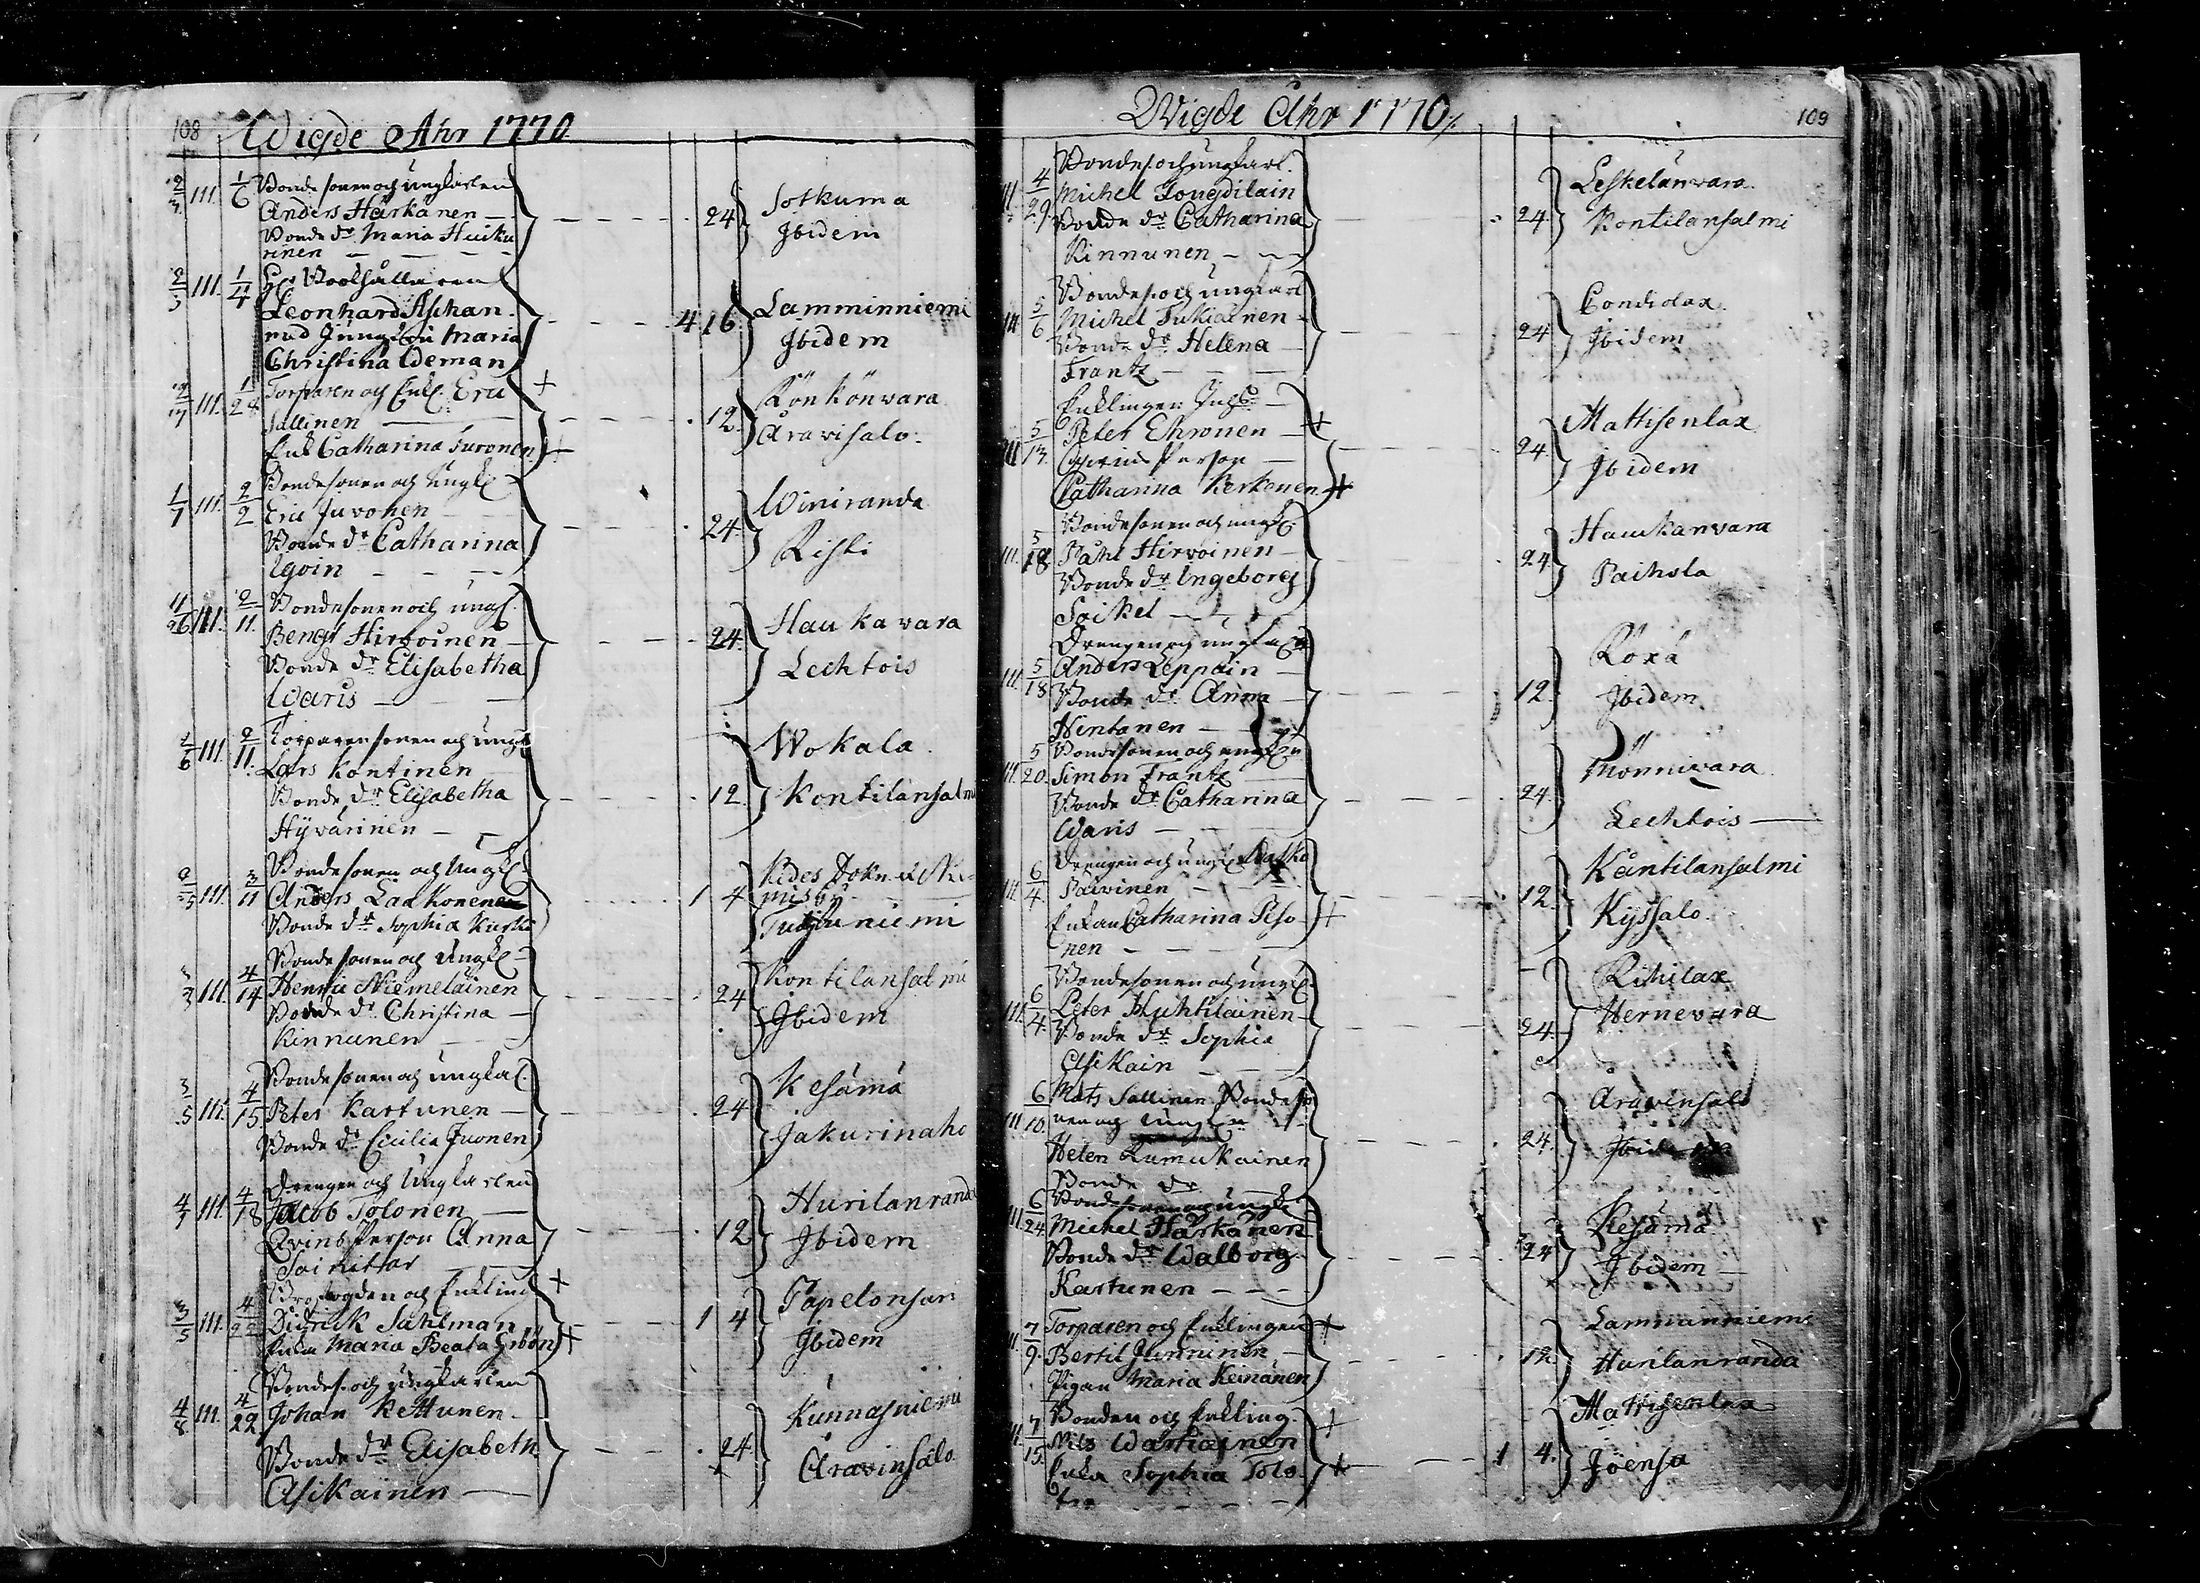 108 Wigde Åhr 1770
2/3 111. 1/6 Bonde sonen och ungkarlen
Anders Härkänen
Bonde dr Maria Huiku
rinen
24 Sotkuma
Ibidem
2/3 111. 1/4 Bookhållaren
Leonhard Aschan
med Jungfru Maria
Christina Ideman
4 16 Lamminniemi
Ibidem
111. 1/28 Torparen och Enkl. Eric +
Sallinen
Enk Catharina Turonen +
12 Rönkönvara
Aravisalo
1/7 111. 2/2 Bondesonen och Ungk
Eric Juvonen
Bonde dr Catharina
Igoin
24 Winiranda
Risti
11/26 111. 2/11 Bondesonen och ungk.
Bengt Hirvoinen
Bonde dr Elisabetha
Waris
24 Haukavara
Lechtois
1/6 111. 2/11 Torparesonen och ungk
Lars Kontinen
Bonde dr Elisabetha
Hyvärinen
12 Wokala
Kontilansalmi
111. 3/11 Bondesonen och Ungk.
Anders Laukonen
Bonde dr Sophia
1 4 Kides Sokn
niemi
111. 4/14 Bondesonen och Ungk
Henric Niemeläinen
Bonde dr Christina
Kinnunen
24 Kontilansalmi
Ibidem
3/5 111. 4/15 Bondesonen och ungka
Peter Kartunen
Bonde dr Cicilia Juonen
24 Kesämä
Jakurinaho
4/1 111. 4/18 Drengen och Ungkarlen
Jacob Tolonen
Qvinsperson Anna
Soinittar
12 Hurilanranda
Ibidem
3/5 111. 4/22 och Enkling +
Didrick Sahlman
Enka Maria Beata Grbön +
1 4 Papelonsari
Ibidem
4/8 111. 4/29 Bondes. och ungkarlen
Johan Kettunen
Bonde dr Elisabeth
Asikainen
24 Kunnasniemi
Aravinsalo
Wigde Åhr 1770 109
111. 4/29 Bondes. och ungkarl.
Michel Tougdilain
Bonde dr Catharina
Kinnunen
24 Leskelänvara
Kontilansalmi
111. 5/6 Bondes. och ungkarl
Michel Tukiainen
Bonde dr Helena
Frantz
24 Condiolax
Ibidem
111. 5/13 Enklingen
Peter Ehronen +
Qvins person
Catharina Kerkonen +
24 Mattisenlax
Ibidem
111. 5/18 Bondesonen och ungk
Påhl Hirvoinen
Bonde dr Ingeborg
Soikel
24 Haukanvara
Paihola
111. 5/18 Drengen och ungka
Anders Leppäin
Bonde dr Anna
Nentonen
12 Röxä
Ibidem
111. 5/20 Bondesonen och ungk
Simon Frantz
Bonde dr Catharina
Waris
24 Mönnivara
Lechtois
111. 6/4 Drengen och ungk
Päivinen
Enkan Catharina Peso +
nen
12 Kåntilansalmi
Kyssalo
111. 6/4 Bondesonen och ungk
Peter Huhtilainen
Bonde dr Sophia
Asikain
24 Rihilax
Hernevara
111. 6/10 Mats Sallinen Bondeso
nen och ungk
Helen Rumukainen
Bonde dr
24 Aravinsalo
Ibidem
111. 6/24 Bondesonen och ungk
Michel Härkänen
Bonde dr Walborg
Kartunen
24 Kesämä
Ibidem
7/9 Torparen och Enklingen +
Bertil Junnunen
Pigan Maria Keinänen
12 Lamminniemi
Hurilanranda
7/15 Bonden och Enkling. +
Nils Wartiainen
Enka Sophia Tolo +
1 4 Mattisenlax
Joensu